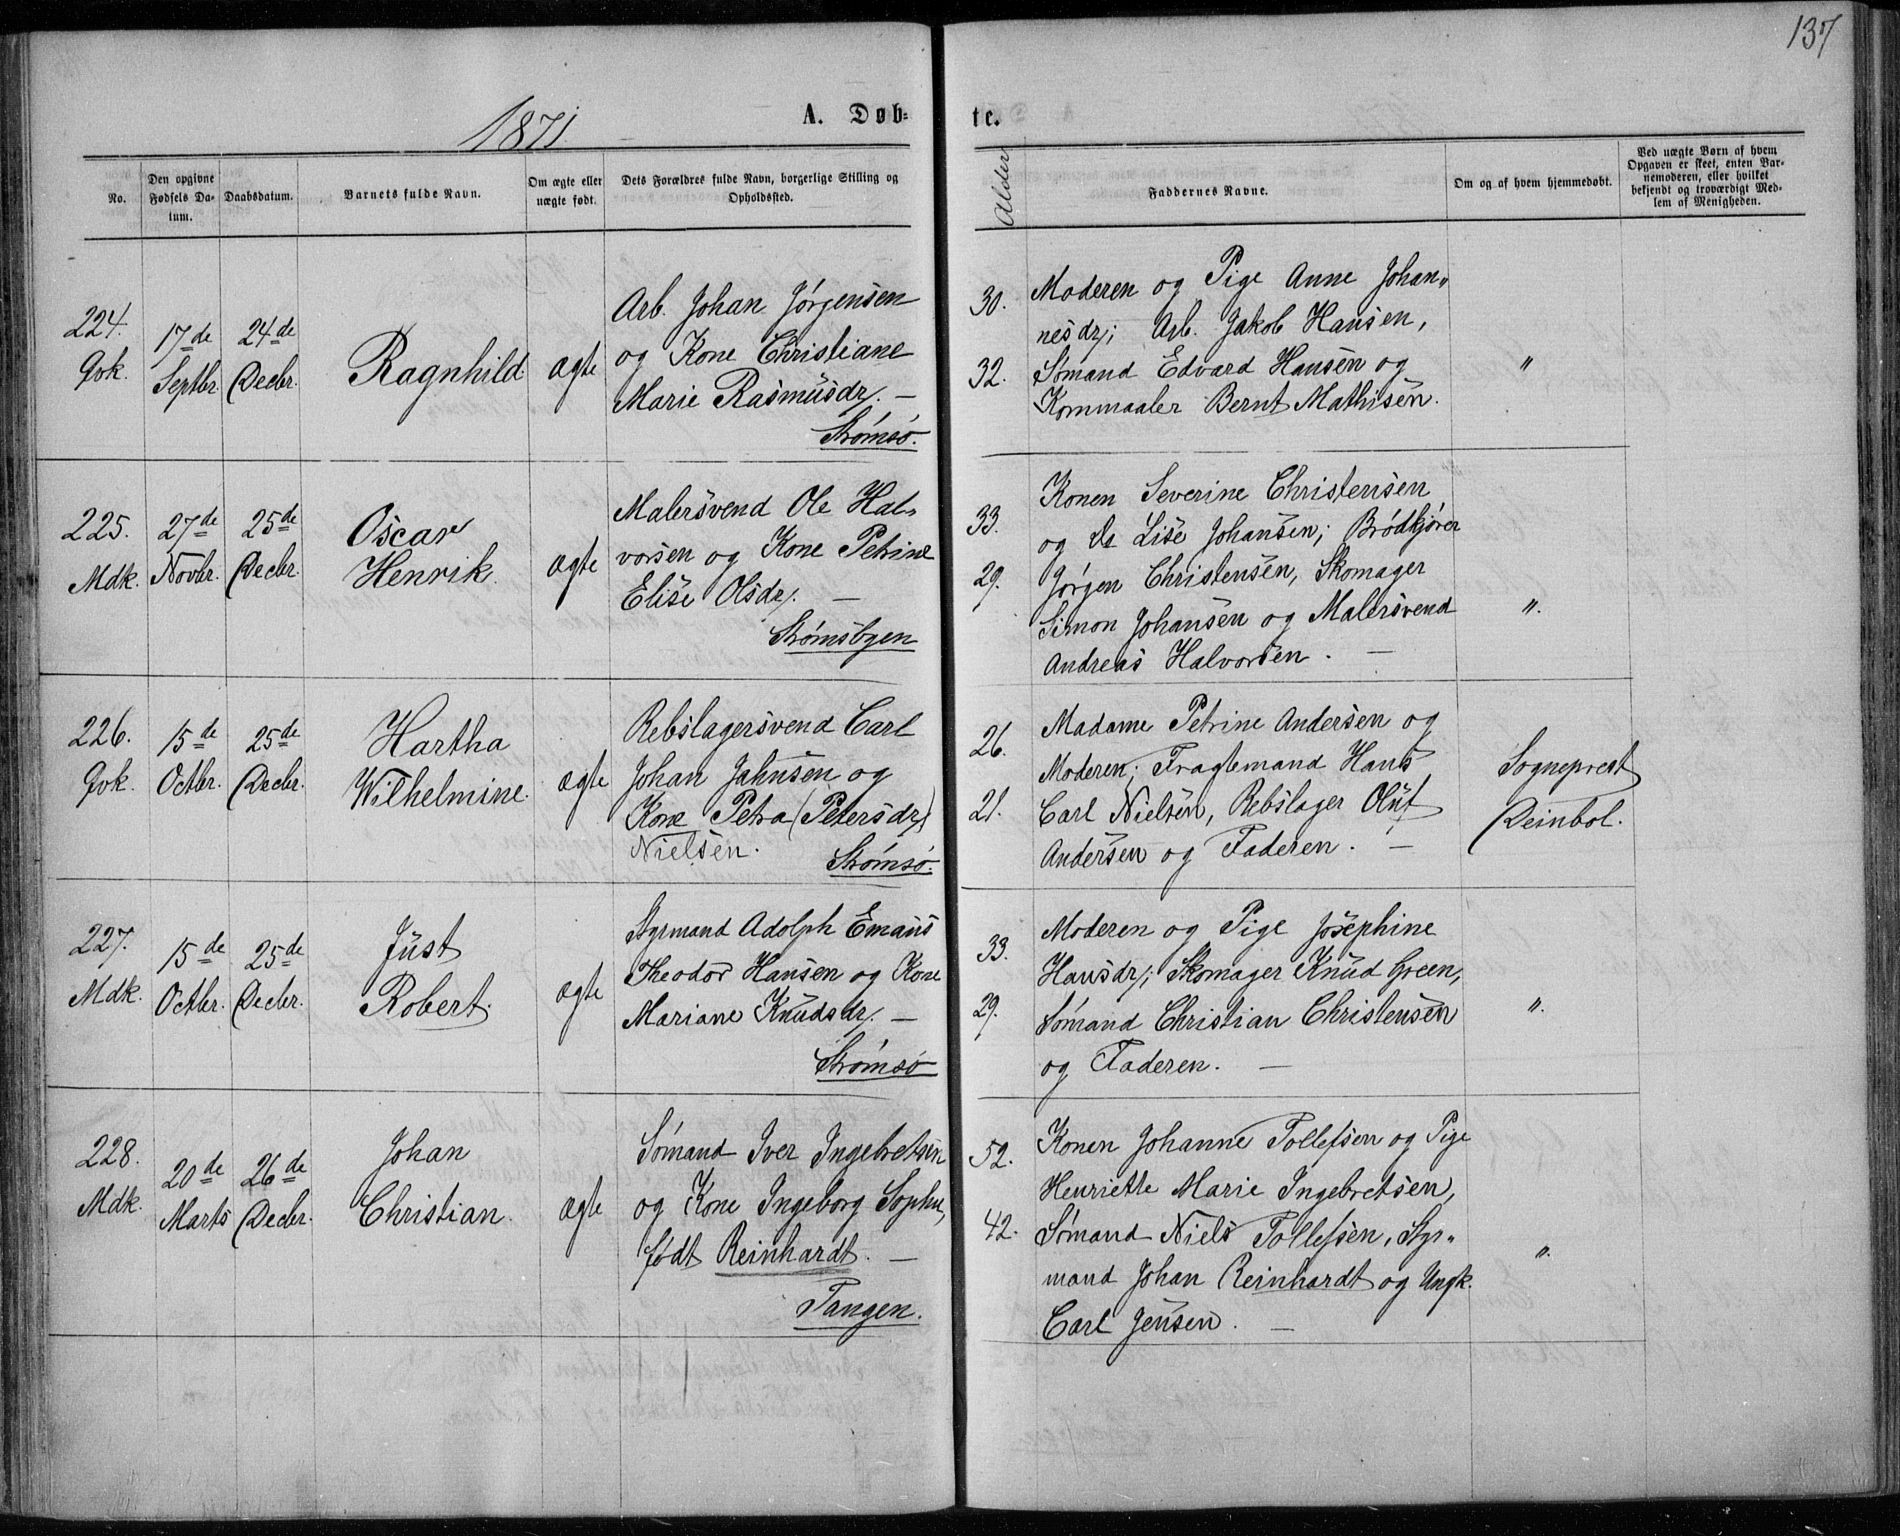 137
1871.
A. Døb-
te.
No.
Den opgivne Fødsels Da-
tum.
Daabsdatum.
Barnets fulde Navn.
Om ægte eller uægte født.
Dets Forældres fulde Navn, borgerlige Stilling og Opholdssted.
Alder
Faddernes Navne.
Om og af hvem hjemmedøbt.
Ved uægte Børn af hvem
Opgaven er skeet, enten Bar-
nemoderen, eller hvilket
bekjendt og troværdigt Med-
lem af Menigheden.
224.
Qvk.
17de
Septbr.
24de
Decbr.
Ragnhild
ægte
Arb. Johan Jørgensen
og Kone Christiane
Marie Rasmusdr. —
Strømsø.
30.
32.
Moderen og Pige Anne Johan„
nesdr; Arb. Jakob Hansen,
Sømand Edvard Hansen og
Kornmaaler Bernt Mathisen.
"
225.
Mdk.
27de
Novbr.
25de
Decbr.
Oscar
Henrik.
ægte
Malersvend Ole Hal„
vorsen og Kone Petrine
Elise Olsdr. —
Strømsbyen
33.
29.
Konen Severine Christensen
og do Lise Johansen; Brødkjører
Jørgen Christensen, Skomager
Simon Johansen og Malersvend
Andreas Halvorsen. —
".
226.
Qvk.
15de
Octbr.
25de
Decbr.
Hartha
Wilhelmine.
ægte
Rebslagersvend Carl
Johan Jahnsen og
Kone Petra (Petersdr)
Nielsen.
Strømsø.
26.
21.
Madame Petrine Andersen og
Moderen; Fragtemand Hans
Carl Nielsen, Rebslager Oluf
Andersen og Faderen. —
Sogneprest
Reinbol.
227.
Mdk.
15de
Octbr.
25de
Decbr.
Just
Robert.
ægte
Styrmand Adolph Emaus
Theodor Hansen og Kone
Mariane Knudsdr. —
Strømsø
33.
29.
Moderen og Pige Josephine
Hansdr; Skomager Knud Green,
Sømand Christian Christensen
og Faderen. —
".
228.
Mdk.
20de
Marts
26de
Decbr.
Johan
Christian.
ægte
Sømand Iver Ingebretsen
og Kone Ingeborg Sophie,
født Reinhardt. —
Tangen.
52.
42.
Konen Johanne Tollefsen og Pige
Henriette Marie Ingebretsen,
Sømand Niels Tollefsen, Styr„
mand Johan Reinhardt og Ungk.
Carl Jensen. —
".